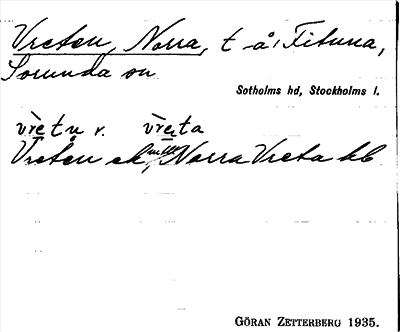 Vreten, Norra, t å, Fituna,
Sorunda sn
Sotholms hd, Stockholms l.
v̀re̱tn̥ v. v̀re̱ta
Vreten ek Norra Vreta kb
GÖRAN ZETTERBERG 1935.